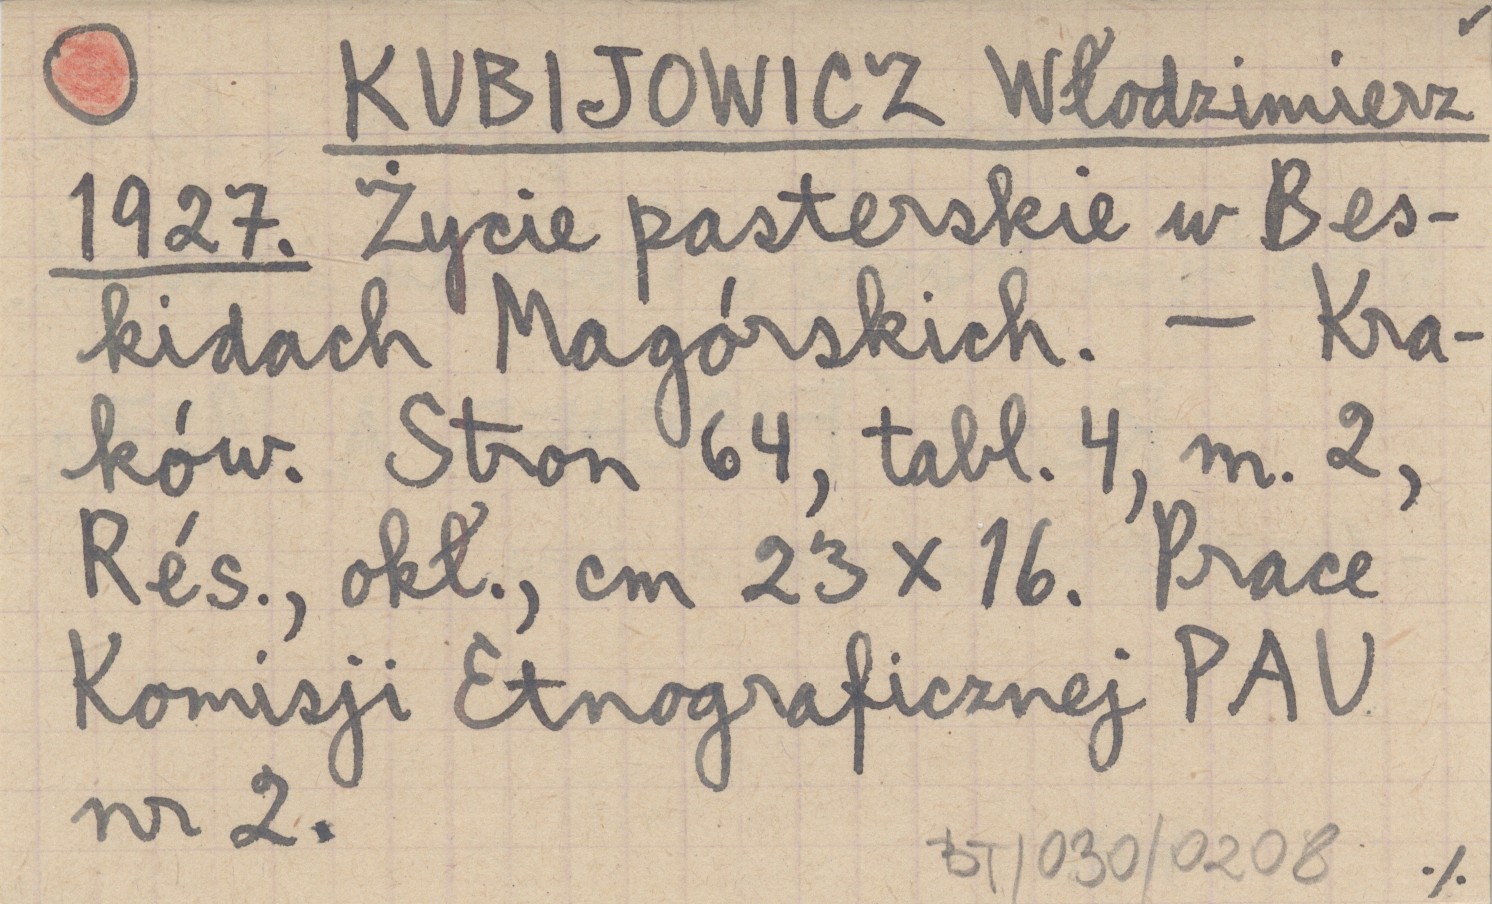 KUBIJOWICZ Włodzimierz
1927. Życie pasterskie w Bes-
kidach Magórskich. — Kra-
ków. Stron 64, tabl. 4, m. 2,
Rés., okł., cm 23 x 16. Prace
Komisji Etnograficznej PAU
nr 2.
BT/030/0208
./.